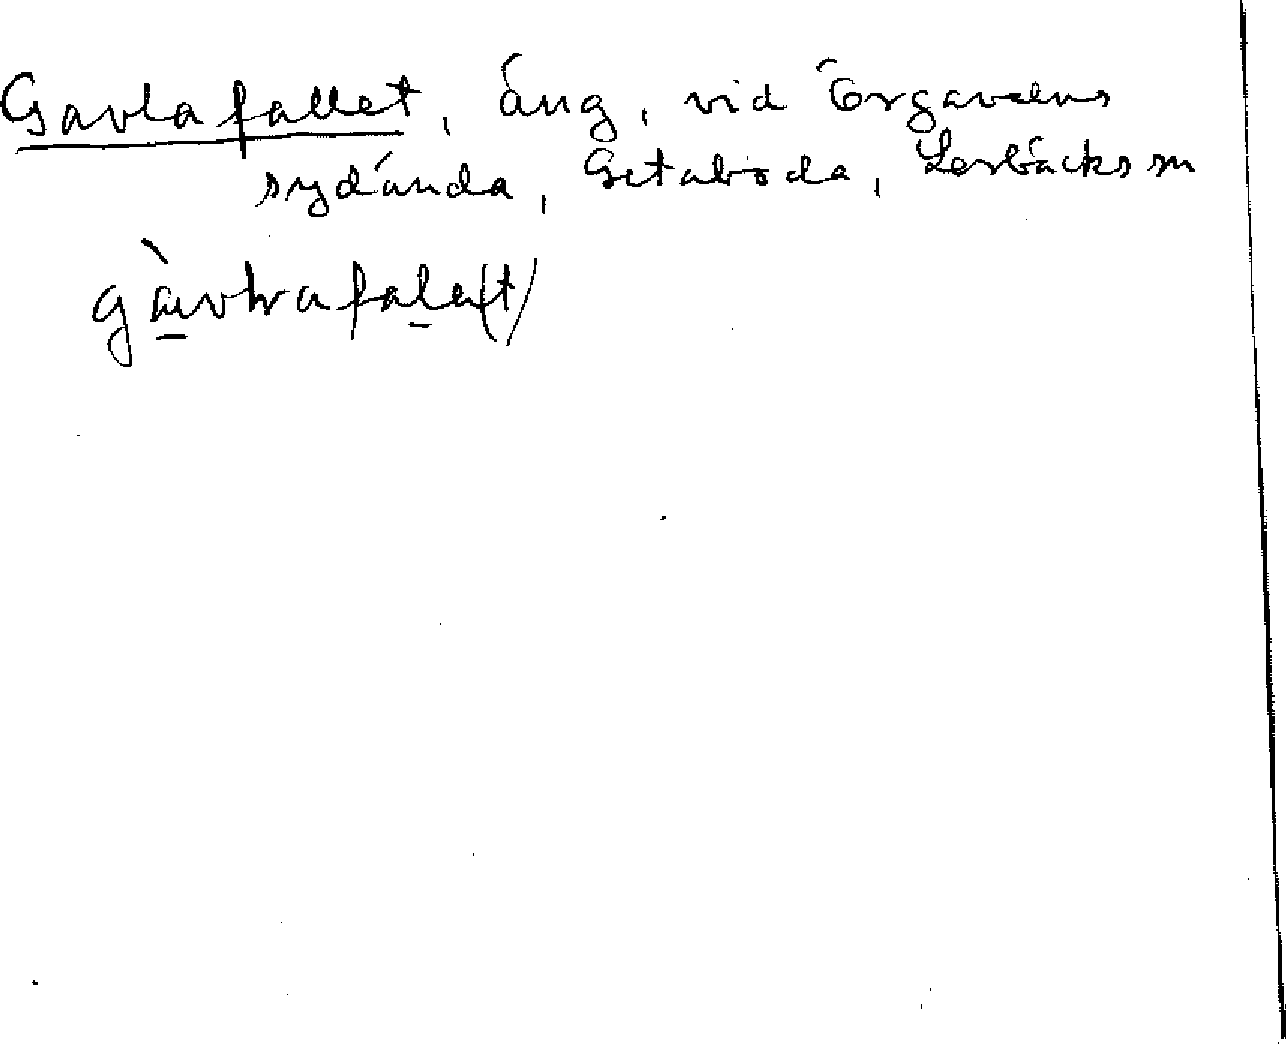 Gavlafallet, äng, vid Örgavelns
sydända, Getaboda, Lerbäcks sn